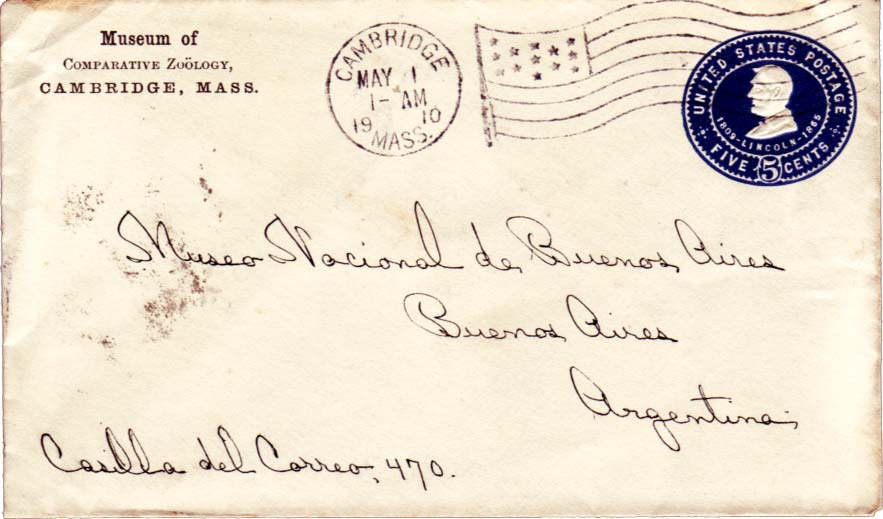 Museum of
COMPARATIVE ZOÖLOGY,
CAMBRIDGE, MASS.
CAMBRIDGE
MAY 1
1- AM
19 10
MASS.
UNITED STATES POSTAGE
1809-LINCOLN-1865
FIVE 5 CENTS
Museo Nacional de Buenos Aires
Buenos Aires
Argentina
Casilla del Correo, 470.